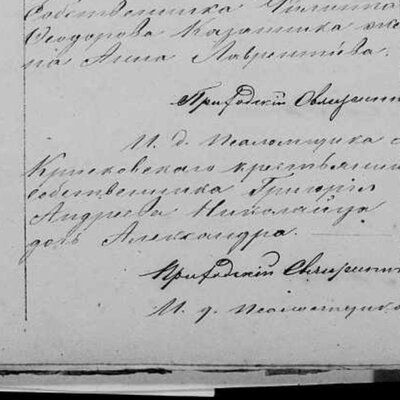 собственника Филиппа
Феодорова Казанника же
на Анна Лаврентіева.
Приходскій Священни
И. д. Псаломщика
крестьянин
собственника Григорія
Андреева Николайца
дочь Александра.
Приходскій Священни
И. д. Псаломщика